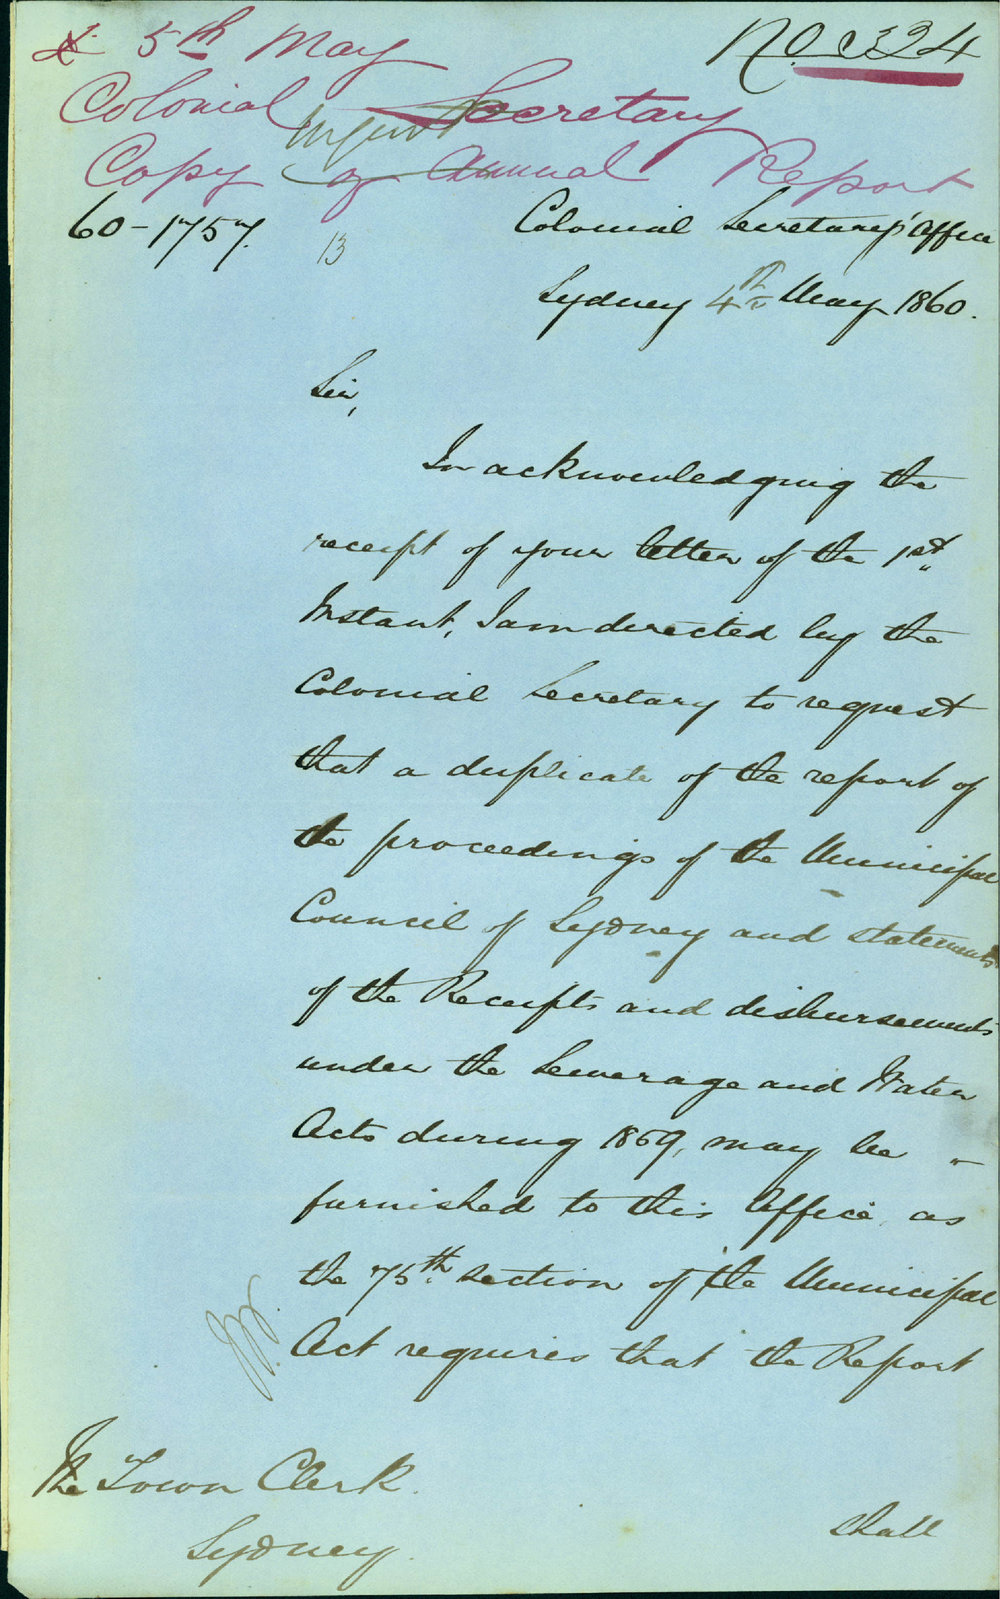 5th May
No. 324
Colonial Secretary
Urgent
Copy of Annual Report
60-1757.
13
Colonial Secretary's Office
Sydney 4th May 1860.
Sir,
In acknowledging the
receipt of your letter of the 1st
Instant, I am directed by the
Colonial Secretary to request
that a duplicate of the report of
the proceedings of the Municipal
Council of Sydney and statements
of the Receipts and disbursements
under the Sewerage and Water
Acts during 1859, may be
furnished to this Office, as
the 75th section of the Municipal
Act requires that the Report
The Town Clerk.
Sydney.
shall